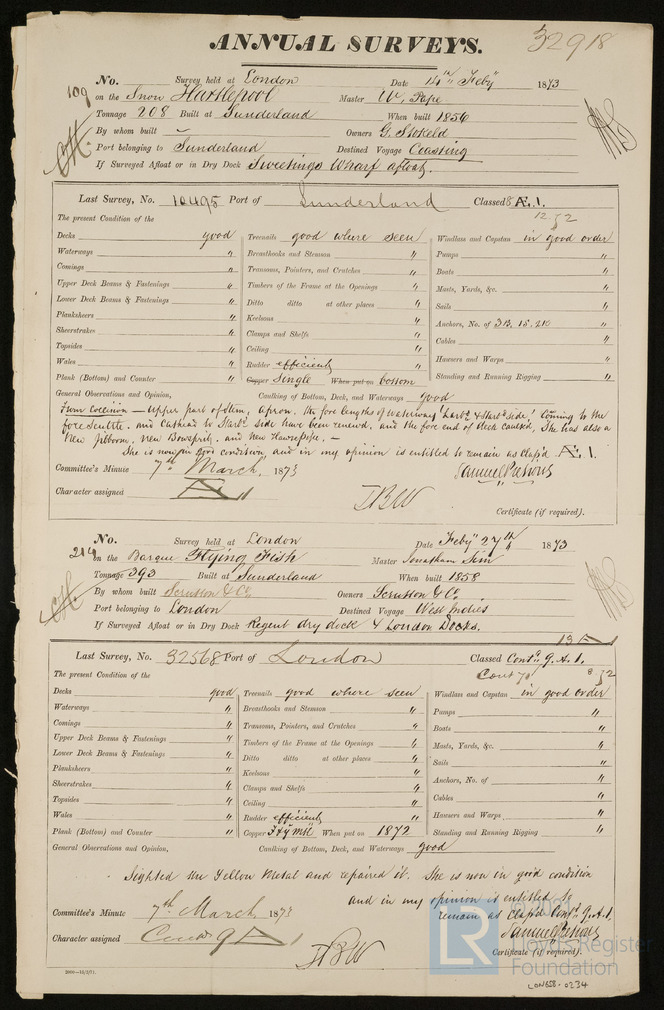 ANNUAL SURVEYS. 32918
No. 109 Survey held at London Date 14th Feby 1873
on the Snow Hartlepool Master Wm Pape
Tonnage 208 Built at Sunderland When built 1856
By whom built — Owners G. Stokeld
Port belonging to Sunderland Destined Voyage Coasting
If Surveyed Afloat or in Dry Dock Sweetings Wharf afloat.
Last Survey, No. 10495 Port of Sunderland Classed Æ.1.
12.72
The present Condition of the
Decks good Treenails good where seen Windlass and Capstan in good order
Waterways " Breasthooks and Stemson " Pumps "
Comings " Transoms, Pointers, and Crutches " Boats "
Upper Deck Beams & Fastenings " Timbers of the Frame at the Openings " Masts, Yards, &c. "
Lower Deck Beams & Fastenings " Ditto ditto at other places " Sails "
Planksheers " Keelsons " Anchors, No. of 3B. 1S. 2K "
Sheerstrakes " Clamps and Shelfs " Cables "
Topsides " Ceiling " Hawsers and Warps "
Wales " Rudder efficient " Standing and Running Rigging "
Plank (Bottom) and Counter " Copper Single When put on bottom
General Observations and Opinion, Caulking of Bottom, Deck, and Waterways good
From Collision — upper part of stem, apron, the fore lengths of waterway Larbd & Starbd side, Coming to the
fore scuttle, and Cathead to Starbd side have been renewed, and the fore end of deck caulked, She has also a
New Jibboom, new Bowsprit, and New Hawsepipe. —
She is now in good condition and in my opinion is entitled to remain as Class'd Æ 1.
Committee's Minute 7th March, 1873 Samuel Persons
Character assigned Æ 1 TBW
Certificate (if required).
No. 214 Survey held at London Date Feby 27th 1873
on the Barque Flying Fish Master Jonathan Sim
Tonnage 393 Built at Sunderland When built 1858
By whom built Scrutton & Co Owners Scrutton & Co.
Port belonging to London Destined Voyage West Indies
If Surveyed Afloat or in Dry Dock Regent dry dock & London Docks.
13 A
Last Survey, No. 32568 Port of London Classed Contd 9.A.1.
Contd 70 8.72
The present Condition of the
Decks good Treenails good where seen Windlass and Capstan in good order
Waterways " Breasthooks and Stemson " Pumps "
Comings " Transoms, Pointers, and Crutches " Boats "
Upper Deck Beams & Fastenings " Timbers of the Frame at the Openings " Masts, Yards, &c. "
Lower Deck Beams & Fastenings " Ditto ditto at other places " Sails "
Planksheers " Keelsons " Anchors, No. of "
Sheerstrakes " Clamps and Shelfs " Cables "
Topsides " Ceiling " Hawsers and Warps "
Wales " Rudder efficient Standing and Running Rigging "
Plank (Bottom) and Counter " Copper F & YMtl When put on 1872
General Observations and Opinion, Caulking of Bottom, Deck, and Waterways good
Sighted the Yellow Metal and repaired it. She is now in good condition
and in my opinion is entitled to
remain as Class'd Contd 9.A.1.
Committee's Minute 7th March, 1873
Samuel Persons
Character assigned Contd 9 A 1 TBW
Certificate (if required).
LR
Lloyd's Register
Foundation
LON658-0234